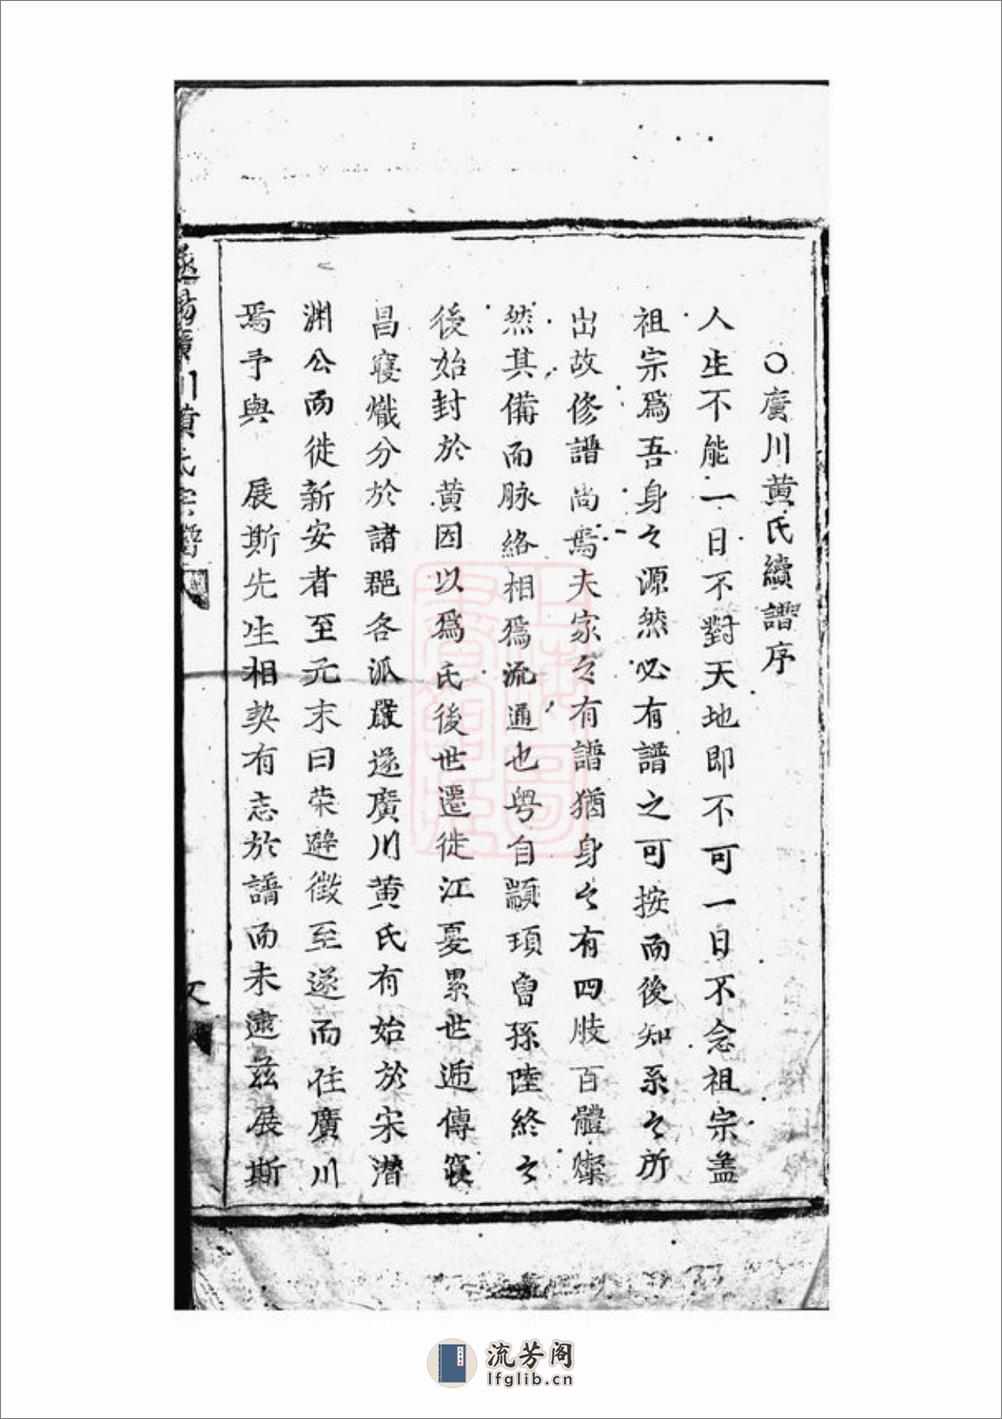 ○廣川黄氏續譜序
人生不能一日不對天地即不可一日不念祖宗葢
祖宗爲吾身之源然必有譜之可按而後知系之所
出故修譜尚焉夫家之有譜猶身之有四肢百體燦
然其備而脉絡相爲流通也粤自顓頊曾孫陸終之
後始封於黄因以爲氏後世遷徙江夏累世逓傳寖
昌寖熾分於諸郡各派嚴遂廣川黄氏有始於宋潛
渊公而徙新安者至元末曰荣避徵至遂而住廣川
焉予與 展斯先生相契有志於譜而未逮兹展斯
遂陽廣川黄氏宗譜
流芳阁
lfglib.cn